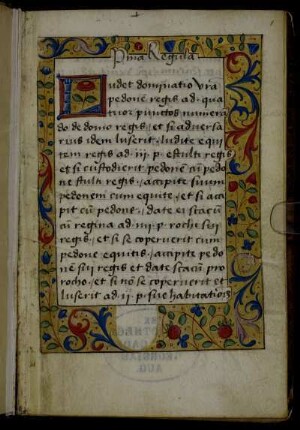 Prima Regula
Ludet dominatio vra
pedone regis ad qua
tuor punttos numera
do de domo regis / et si adversa
rius idem luserit / ludite equi
tem regis ad iii p estulti regis
et si custodierit pedonē cū pedo
ne stulti regis / accipite suum
pedonem cum equite / et si ac
cipit cū pedone / date ei scacū
cū regina ad iiii p rochi sui
regis / et si se coperuerit cum
pedone equitis / accipite pedo
nē sui regis et date scacū pro
rocho / et si nō se coperuerit et
luserit ad ii p sue habitationis